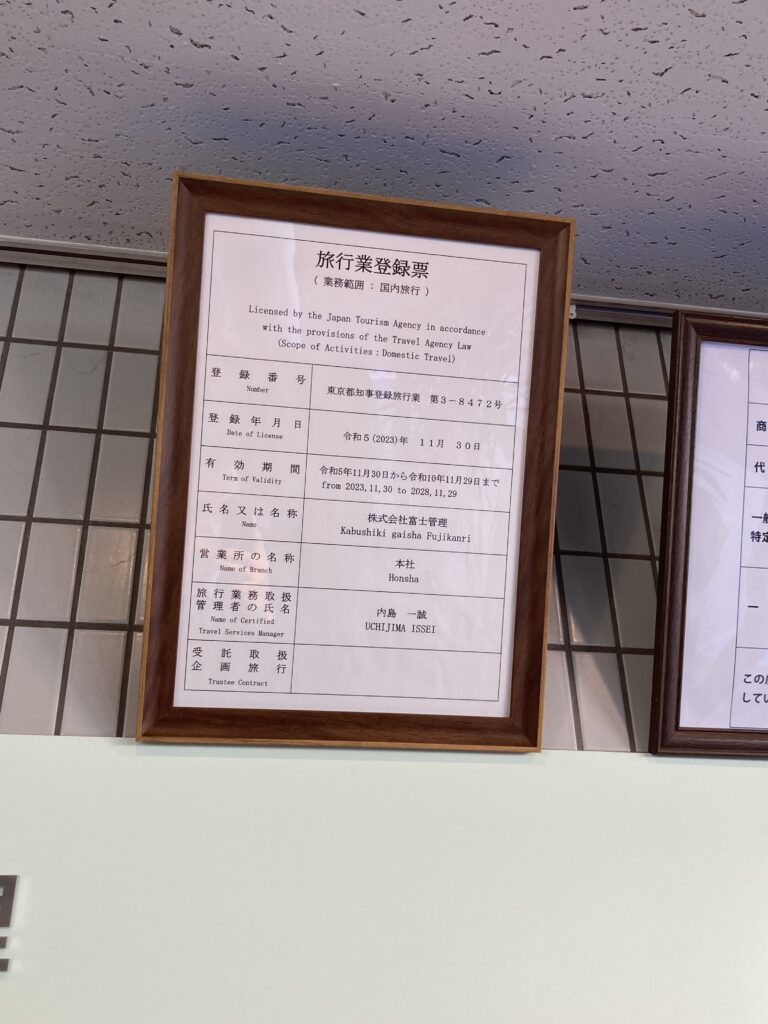 旅行業登録票
( 業務範囲 : 国内旅行 )
Licensed by the Japan Tourism Agency in accordance
with the provisions of the Travel Agency Law
(Scope of Activities : Domestic Travel)
登録番号
Number
東京都知事登録旅行業 第3－8472号
登録年月日
Date of License
令和5(2023)年 11月 30日
有効期間
Term of Validity
令和5年11月30日から令和10年11月29日まで
from 2023,11,30 to 2028,11,29
氏名又は名称
Name
株式会社富士管理
Kabushiki gaisha Fujikanri
営業所の名称
Name of Branch
本社
Honsha
旅行業務取扱
管理者の氏名
Name of Certified
Travel Services Manager
内島 一誠
UCHIJIMA ISSEI
受託取扱
企画旅行
Trustee Contract
商
代
一般
特定
一
この店
してい